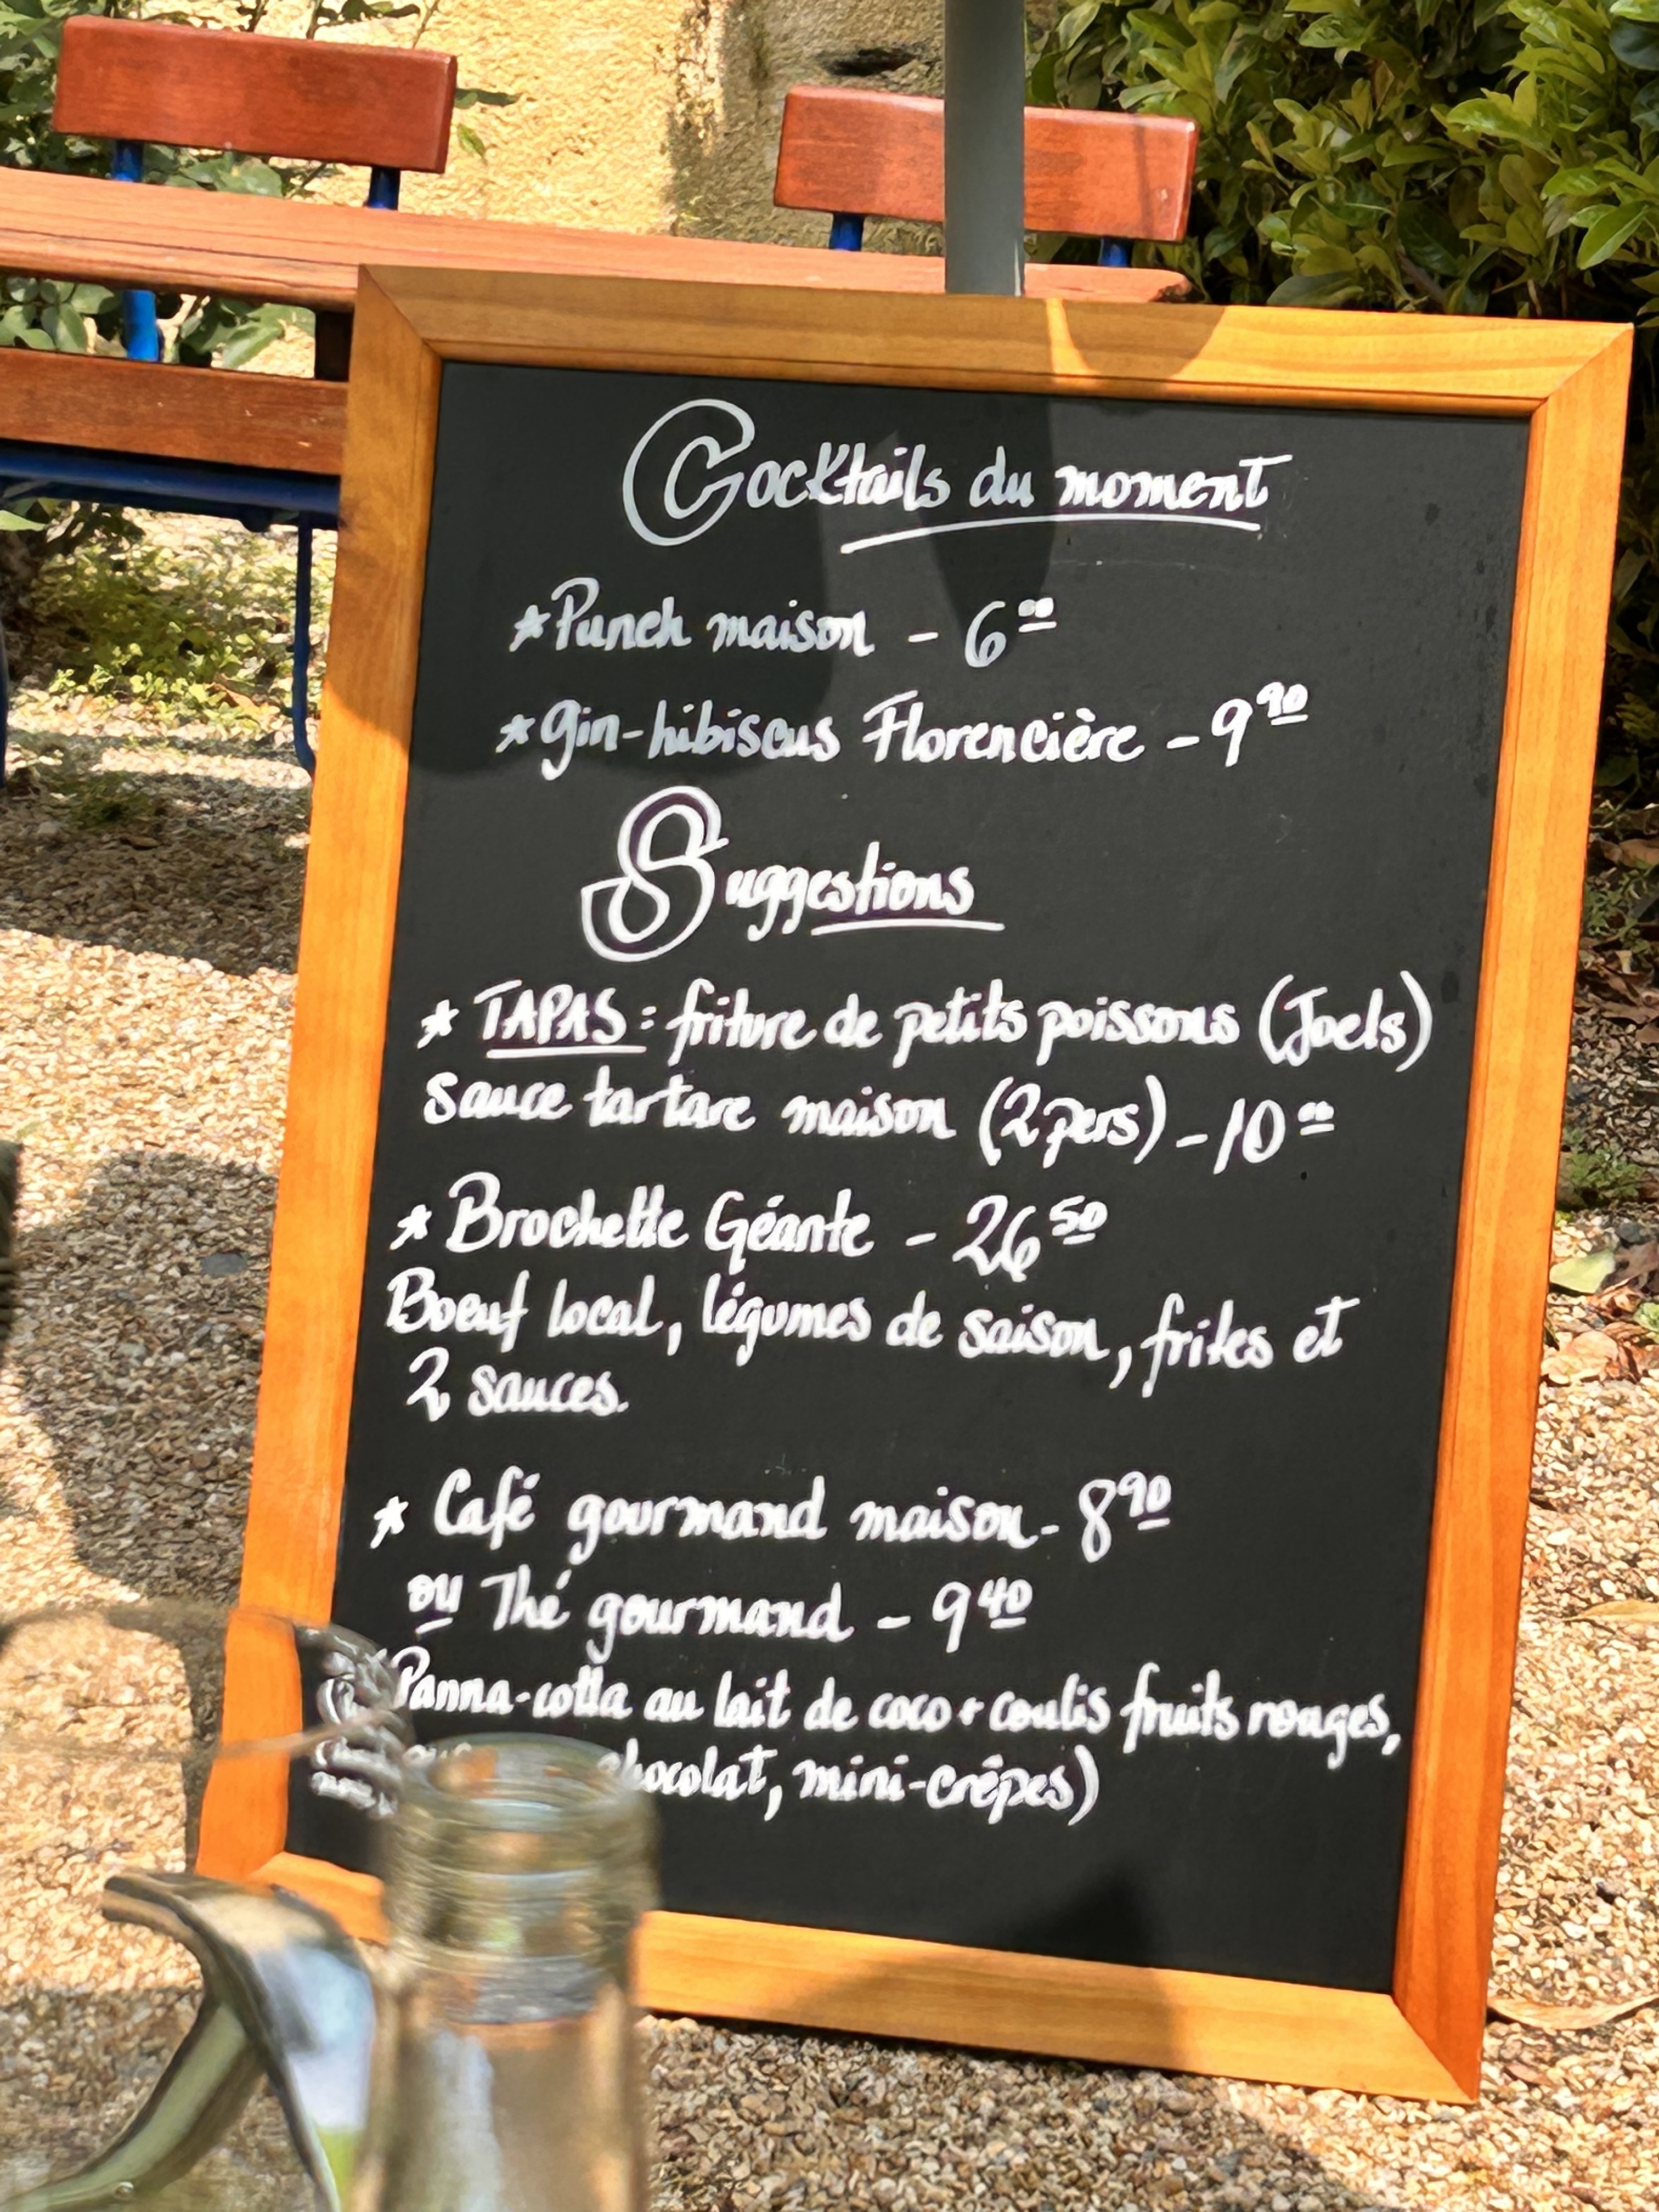 Cocktails du moment
* Punch maison - 6 00
* gin-hibiscus Florencière - 9 90
Suggestions
* TAPAS : friture de petits poissons (Joels)
Sauce tartare maison (2 pers) - 10 00
* Brochette Géante - 26 50
Boeuf local, légumes de saison, frites et
2 sauces.
* Café gourmand maison - 8 90
ou Thé gourmand - 9 40
(Panna-cotta au lait de coco + coulis fruits rouges,
chocolat, mini-crêpes)